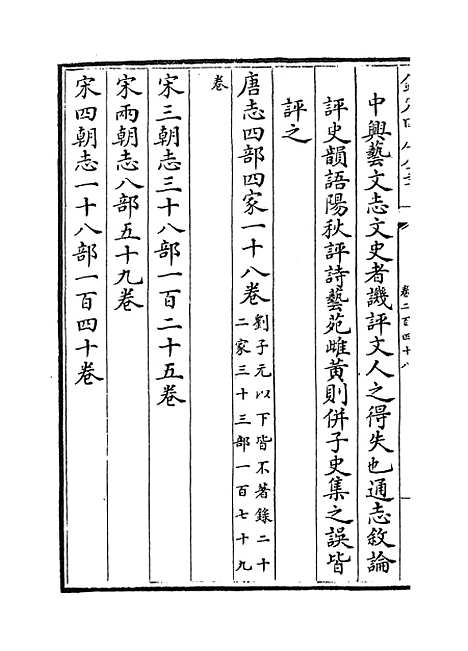 卷二百四十八
中興藝文志文史者譏評文人之得失也通志敘論
評史韻語陽秋評詩藝苑雌黃則併子史集之誤皆
評之
唐志四部四家一十八卷劉子元以下皆不著錄二十
二家三十三部一百七十九
卷
宋三朝志三十八部一百二十五卷
宋兩朝志八部五十九卷
宋四朝志一十八部一百四十卷